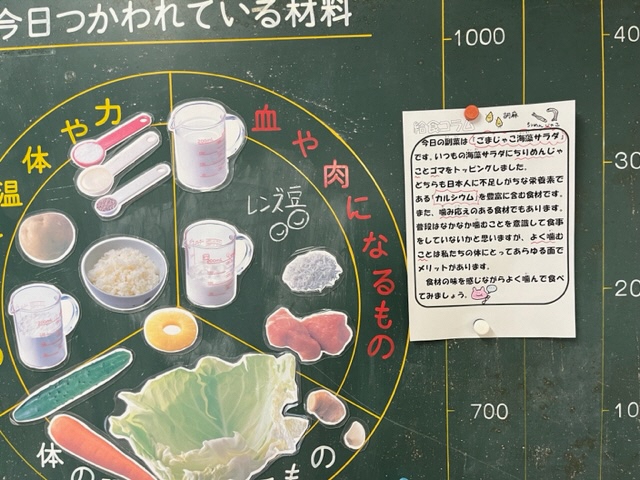 今日つかわれている材料
血や肉になるもの
体や力
温
レンズ豆
体の
もの
1000
700
40
30
20
10
給食コラム
胡麻
今日の副菜は「ごまじゃこ海藻サラダ」
です。いつもの海藻サラダにちりめんじゃ
ことゴマをトッピングしました。
どちらも日本人に不足しがちな栄養素で
ある「カルシウム」を豊富に含む食材です。
また、噛み応えのある食材でもあります。
普段はなかなか噛むことを意識して食事
をしていないかと思いますが、よく噛む
ことは私たちの体にとってあらゆる面で
メリットがあります。
食材の味を感じながらよく噛んで食べ
てみましょう。